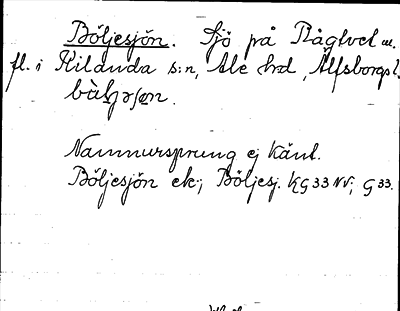 Böljesjön. Sjö på Rågtvet m.
fl. i Kilanda s:n, Ale hrd, Älfsborgs l.
Namnursprung ej känt.
Böljesjön ek.; Böljesj. KG 33 NV; G 33.